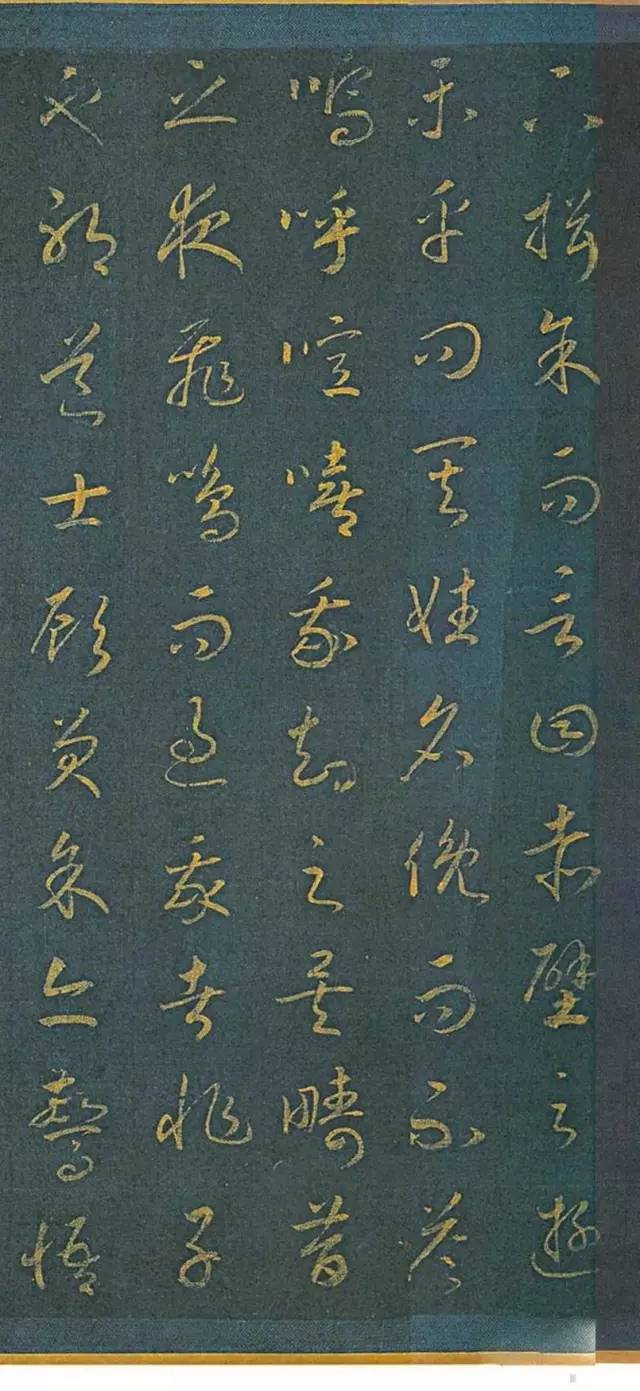 下揖余而言曰赤壁之遊
樂乎問其姓名俛而不答
嗚呼噫嘻我知之矣疇昔
之夜飛鳴而過我者非子
也耶道士顧笑余亦驚悟